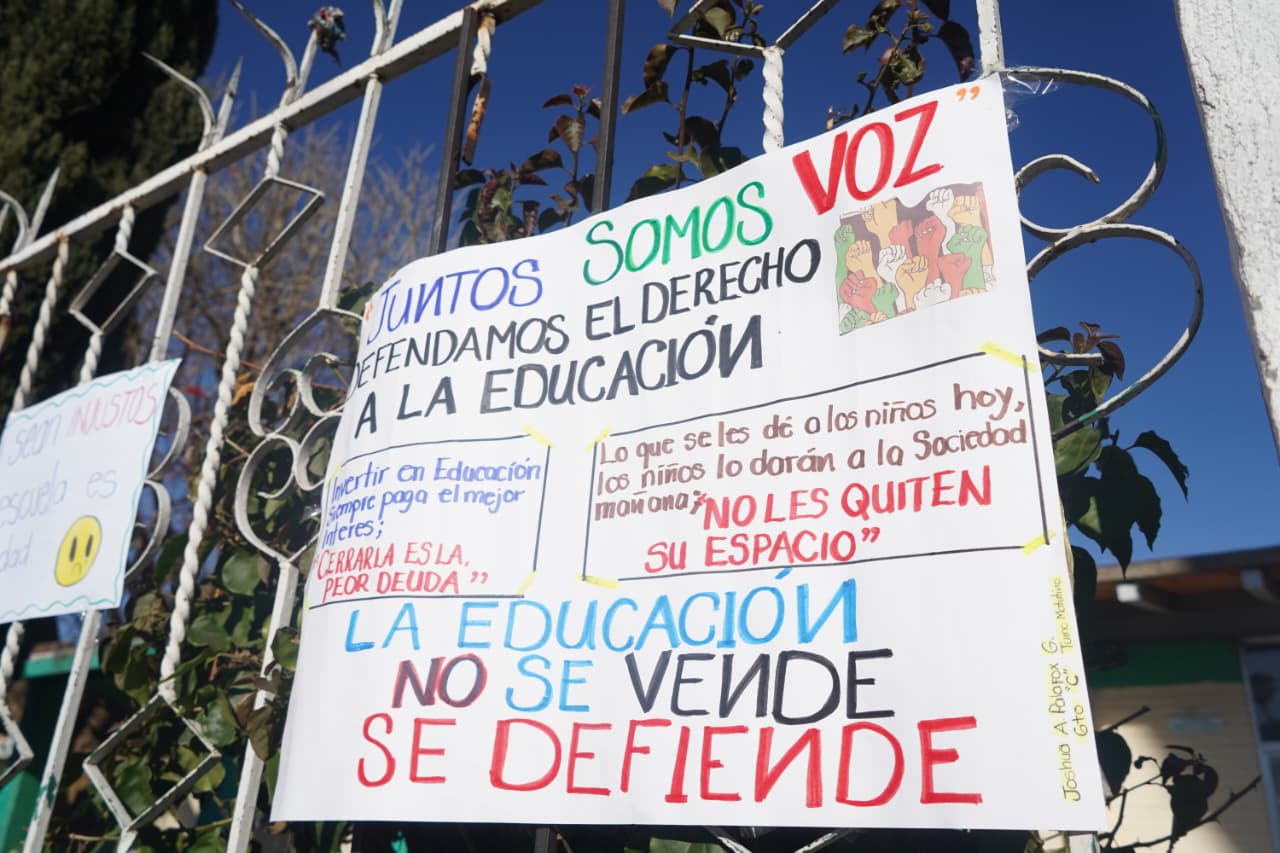 sean INJUSTOS
escuela es
dad.
"JUNTOS SOMOS VOZ"
DEFENDAMOS EL DERECHO
A LA EDUCACIÓN
Invertir en Educación
siempre paga el mejor
interes;
"CERRARLA ES LA,
PEOR DEUDA"
Lo que se les dé a los niños hoy,
los niños lo darán a la Sociedad
mañana; "NO LES QUITEN
SU ESPACIO"
LA EDUCACIÓN
NO SE VENDE
SE DEFIENDE
Joshua A Palafox G.
Gto "C" Turno Matutino